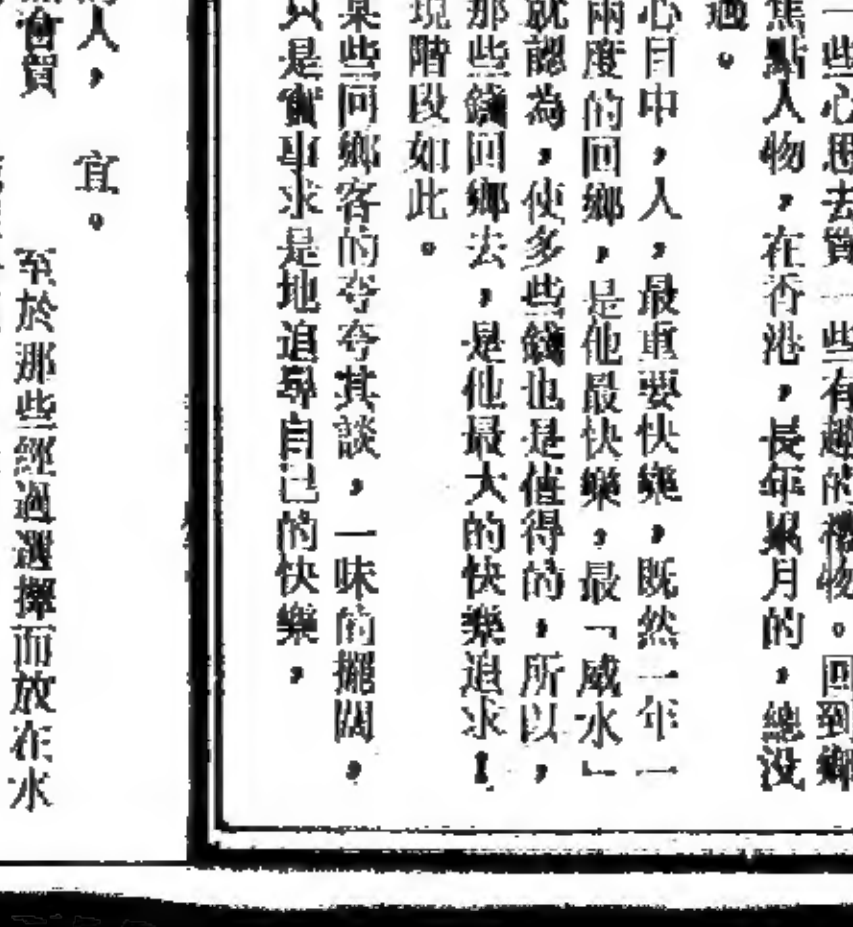 一些心思去買一些有趣的禮物。回到鄉
焦點人物，在香港，長年累月的，總沒
過。
心目中，人，最重要快樂，既然一年一
兩度的回鄉，是他最快樂，最「威水」
就認為，使多些錢也是值得的，所以，
那些錢回鄉去，是他最大的快樂追求！
現階段如此。
某些回鄉客的夸夸其談，一味的擺闊，
只是實事求是地追尋自己的快樂，
人，宜。
至於那些經過選擇而放在水
會買